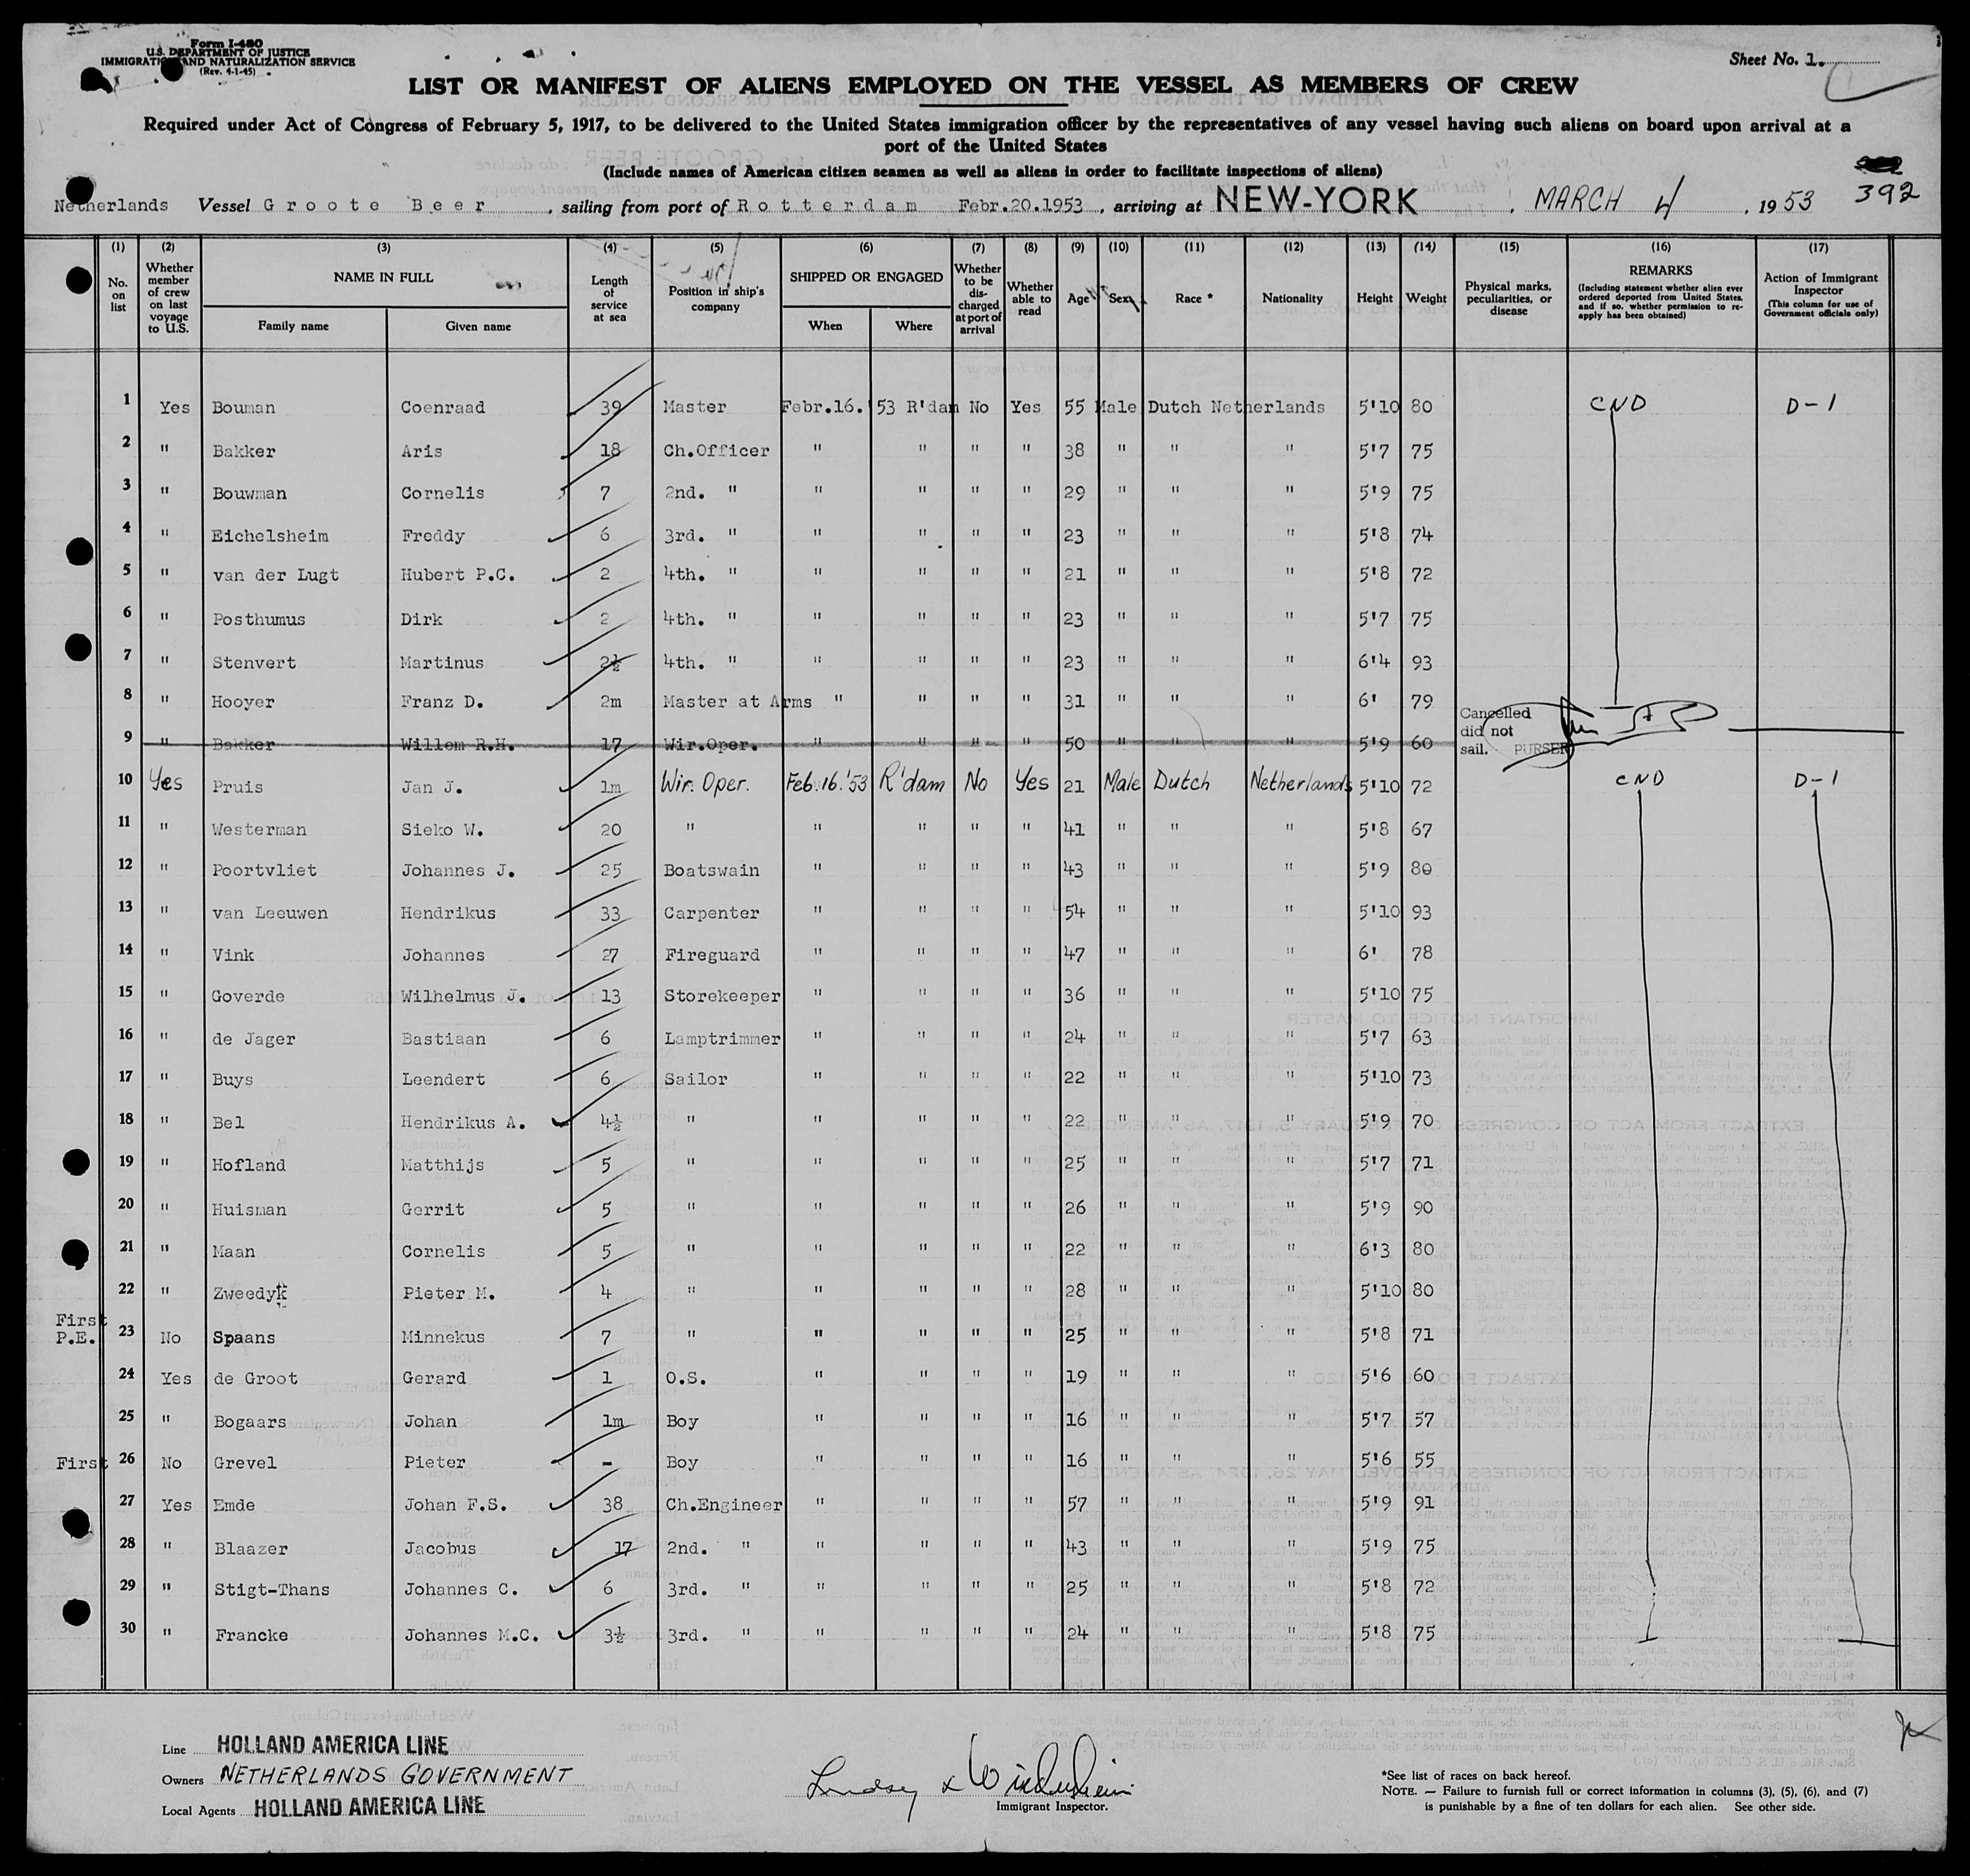 Form I-480
U.S. DEPARTMENT OF JUSTICE
IMMIGRATION AND NATURALIZATION SERVICE
(Rev. 4-1-45)
Sheet No. 1.
LIST OR MANIFEST OF ALIENS EMPLOYED ON THE VESSEL AS MEMBERS OF CREW
Required under Act of Congress of February 5, 1917, to be delivered to the United States immigration officer by the representatives of any vessel having such aliens on board upon arrival at a
port of the United States
(Include names of American citizen seamen as well as aliens in order to facilitate inspections of aliens)
392
Netherlands Vessel Groote Beer, sailing from port of Rotterdam Febr.20.1953, arriving at NEW-YORK, MARCH 4, 1953
(1) (2) (3) (4) (5) (6) (7) (8) (9) (10) (11) (12) (13) (14) (15) (16) (17)
No. on list
Whether member of crew on last voyage to U.S.
NAME IN FULL
Family name Given name
Length of service at sea
Position in ship's company
SHIPPED OR ENGAGED
When Where
Whether to be discharged at port of arrival
Whether able to read
Age Sex Race * Nationality Height Weight
Physical marks, peculiarities, or disease
REMARKS
(Including statement whether alien ever ordered deported from United States, and if so, whether permission to re-apply has been obtained)
Action of Immigrant Inspector
(This column for use of Government officials only)
1 Yes Bouman Coenraad 39 Master Febr.16.'53 R'dam No Yes 55 Male Dutch Netherlands 5'10 80 CND D-1
2 " Bakker Aris 18 Ch.Officer " " " " 38 " " " 5'7 75
3 " Bouwman Cornelis 7 2nd. " " " " " 29 " " " 5'9 75
4 " Eichelsheim Freddy 6 3rd. " " " " " 23 " " " 5'8 74
5 " van der Lugt Hubert P.C. 2 4th. " " " " " 21 " " " 5'8 72
6 " Posthumus Dirk 2 4th. " " " " " 23 " " " 5'7 75
7 " Stenvert Martinus 2½ 4th. " " " " " 23 " " " 6'4 93
8 " Hooyer Franz D. 2m Master at Arms " " " " 31 " " " 6' 79
9 " Bakker Willem R.H. 17 Wir.Oper. " " " " 50 " " " 5'9 60 Cancelled did not sail. PURSER
10 Yes Pruis Jan J. 1m Wir. Oper. Feb.16.'53 R'dam No Yes 21 Male Dutch Netherlands 5'10 72 CND D-1
11 " Westerman Sieko W. 20 " " " " " 41 " " " 5'8 67
12 " Poortvliet Johannes J. 25 Boatswain " " " " 43 " " " 5'9 80
13 " van Leeuwen Hendrikus 33 Carpenter " " " " 54 " " " 5'10 93
14 " Vink Johannes 27 Fireguard " " " " 47 " " " 6' 78
15 " Goverde Wilhelmus J. 13 Storekeeper " " " " 36 " " " 5'10 75
16 " de Jager Bastiaan 6 Lamptrimmer " " " " 24 " " " 5'7 63
17 " Buys Leendert 6 Sailor " " " " 22 " " " 5'10 73
18 " Bel Hendrikus A. 4½ " " " " " 22 " " " 5'9 70
19 " Hofland Matthijs 5 " " " " " 25 " " " 5'7 71
20 " Huisman Gerrit 5 " " " " " 26 " " " 5'9 90
21 " Maan Cornelis 5 " " " " " 22 " " " 6'3 80
22 " Zweedyk Pieter M. 4 " " " " " 28 " " " 5'10 80
First P.E. 23 No Spaans Minnekus 7 " " " " " 25 " " " 5'8 71
24 Yes de Groot Gerard 1 O.S. " " " " 19 " " " 5'6 60
25 " Bogaars Johan 1m Boy " " " " 16 " " " 5'7 57
First 26 No Grevel Pieter - Boy " " " " 16 " " " 5'6 55
27 Yes Emde Johan F.S. 38 Ch.Engineer " " " " 57 " " " 5'9 91
28 " Blaazer Jacobus 17 2nd. " " " " " 43 " " " 5'9 75
29 " Stigt-Thans Johannes C. 6 3rd. " " " " " 25 " " " 5'8 72
30 " Francke Johannes M.C. 3½ 3rd. " " " " " 24 " " " 5'8 75
Line HOLLAND AMERICA LINE
Owners NETHERLANDS GOVERNMENT
Local Agents HOLLAND AMERICA LINE
Immigrant Inspector.
*See list of races on back hereof.
NOTE. — Failure to furnish full or correct information in columns (3), (5), (6), and (7)
is punishable by a fine of ten dollars for each alien. See other side.